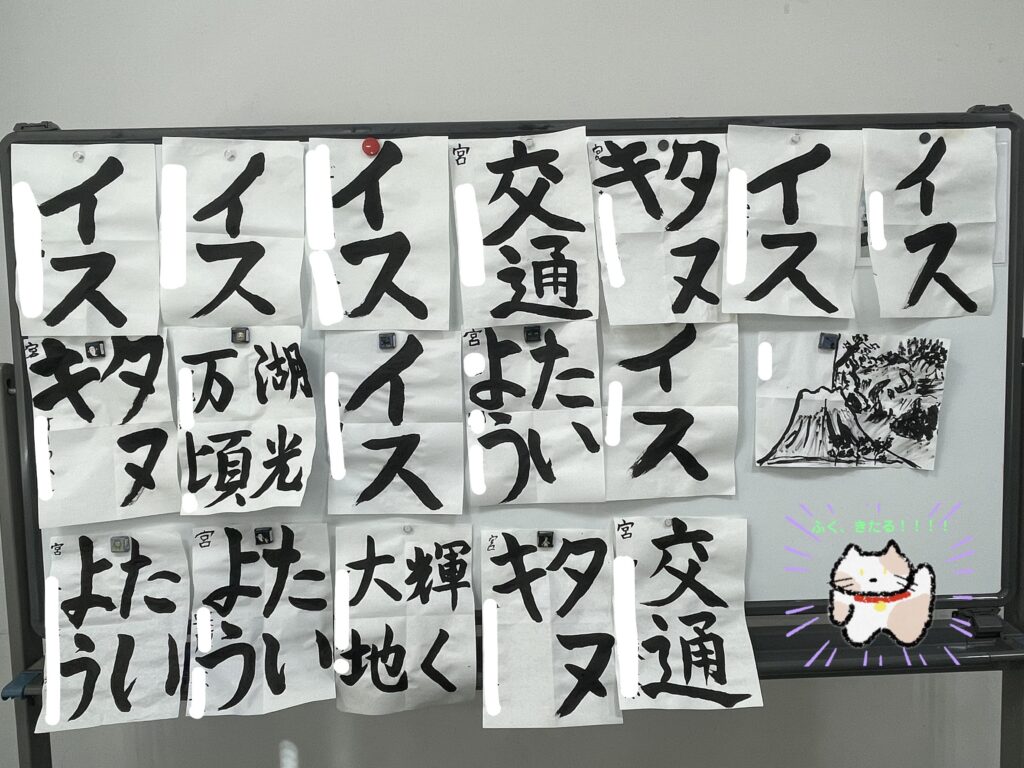 イス
イス
イス
交通
宮
タヌ
キ
宮
イス
イス
タヌ
キ
宮
湖光
万頃
イス
たい
よう
宮
イス
たい
よう
宮
たい
よう
宮
輝く
大地
タヌ
キ
宮
交通
宮
ふく、きたる！！！！